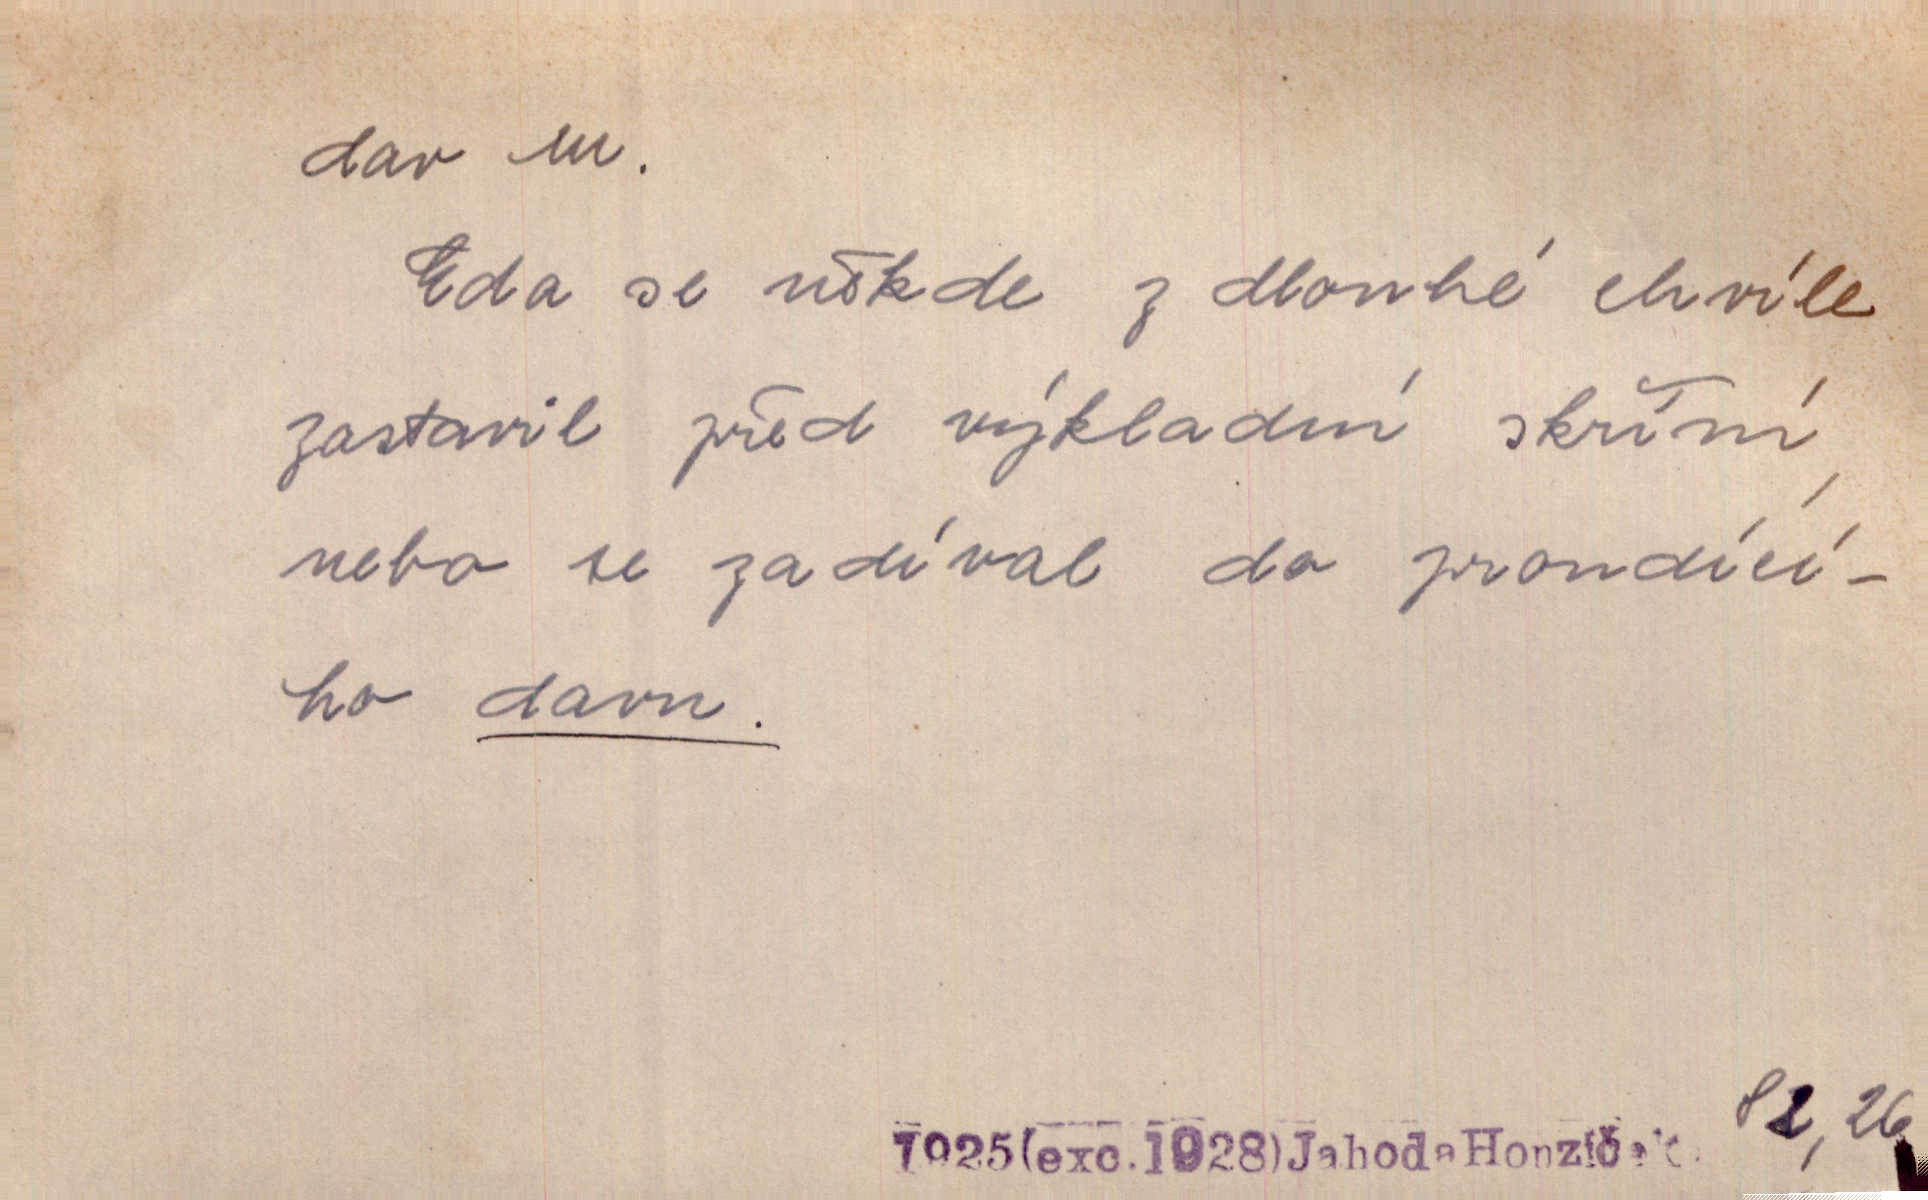 dav m.
Eda se někde z dlouhé chvíle
zastavil před výkladní skříní,
nebo se zadíval do proudící-
ho davu.
82, 26
1925(exc.1928)Jahoda